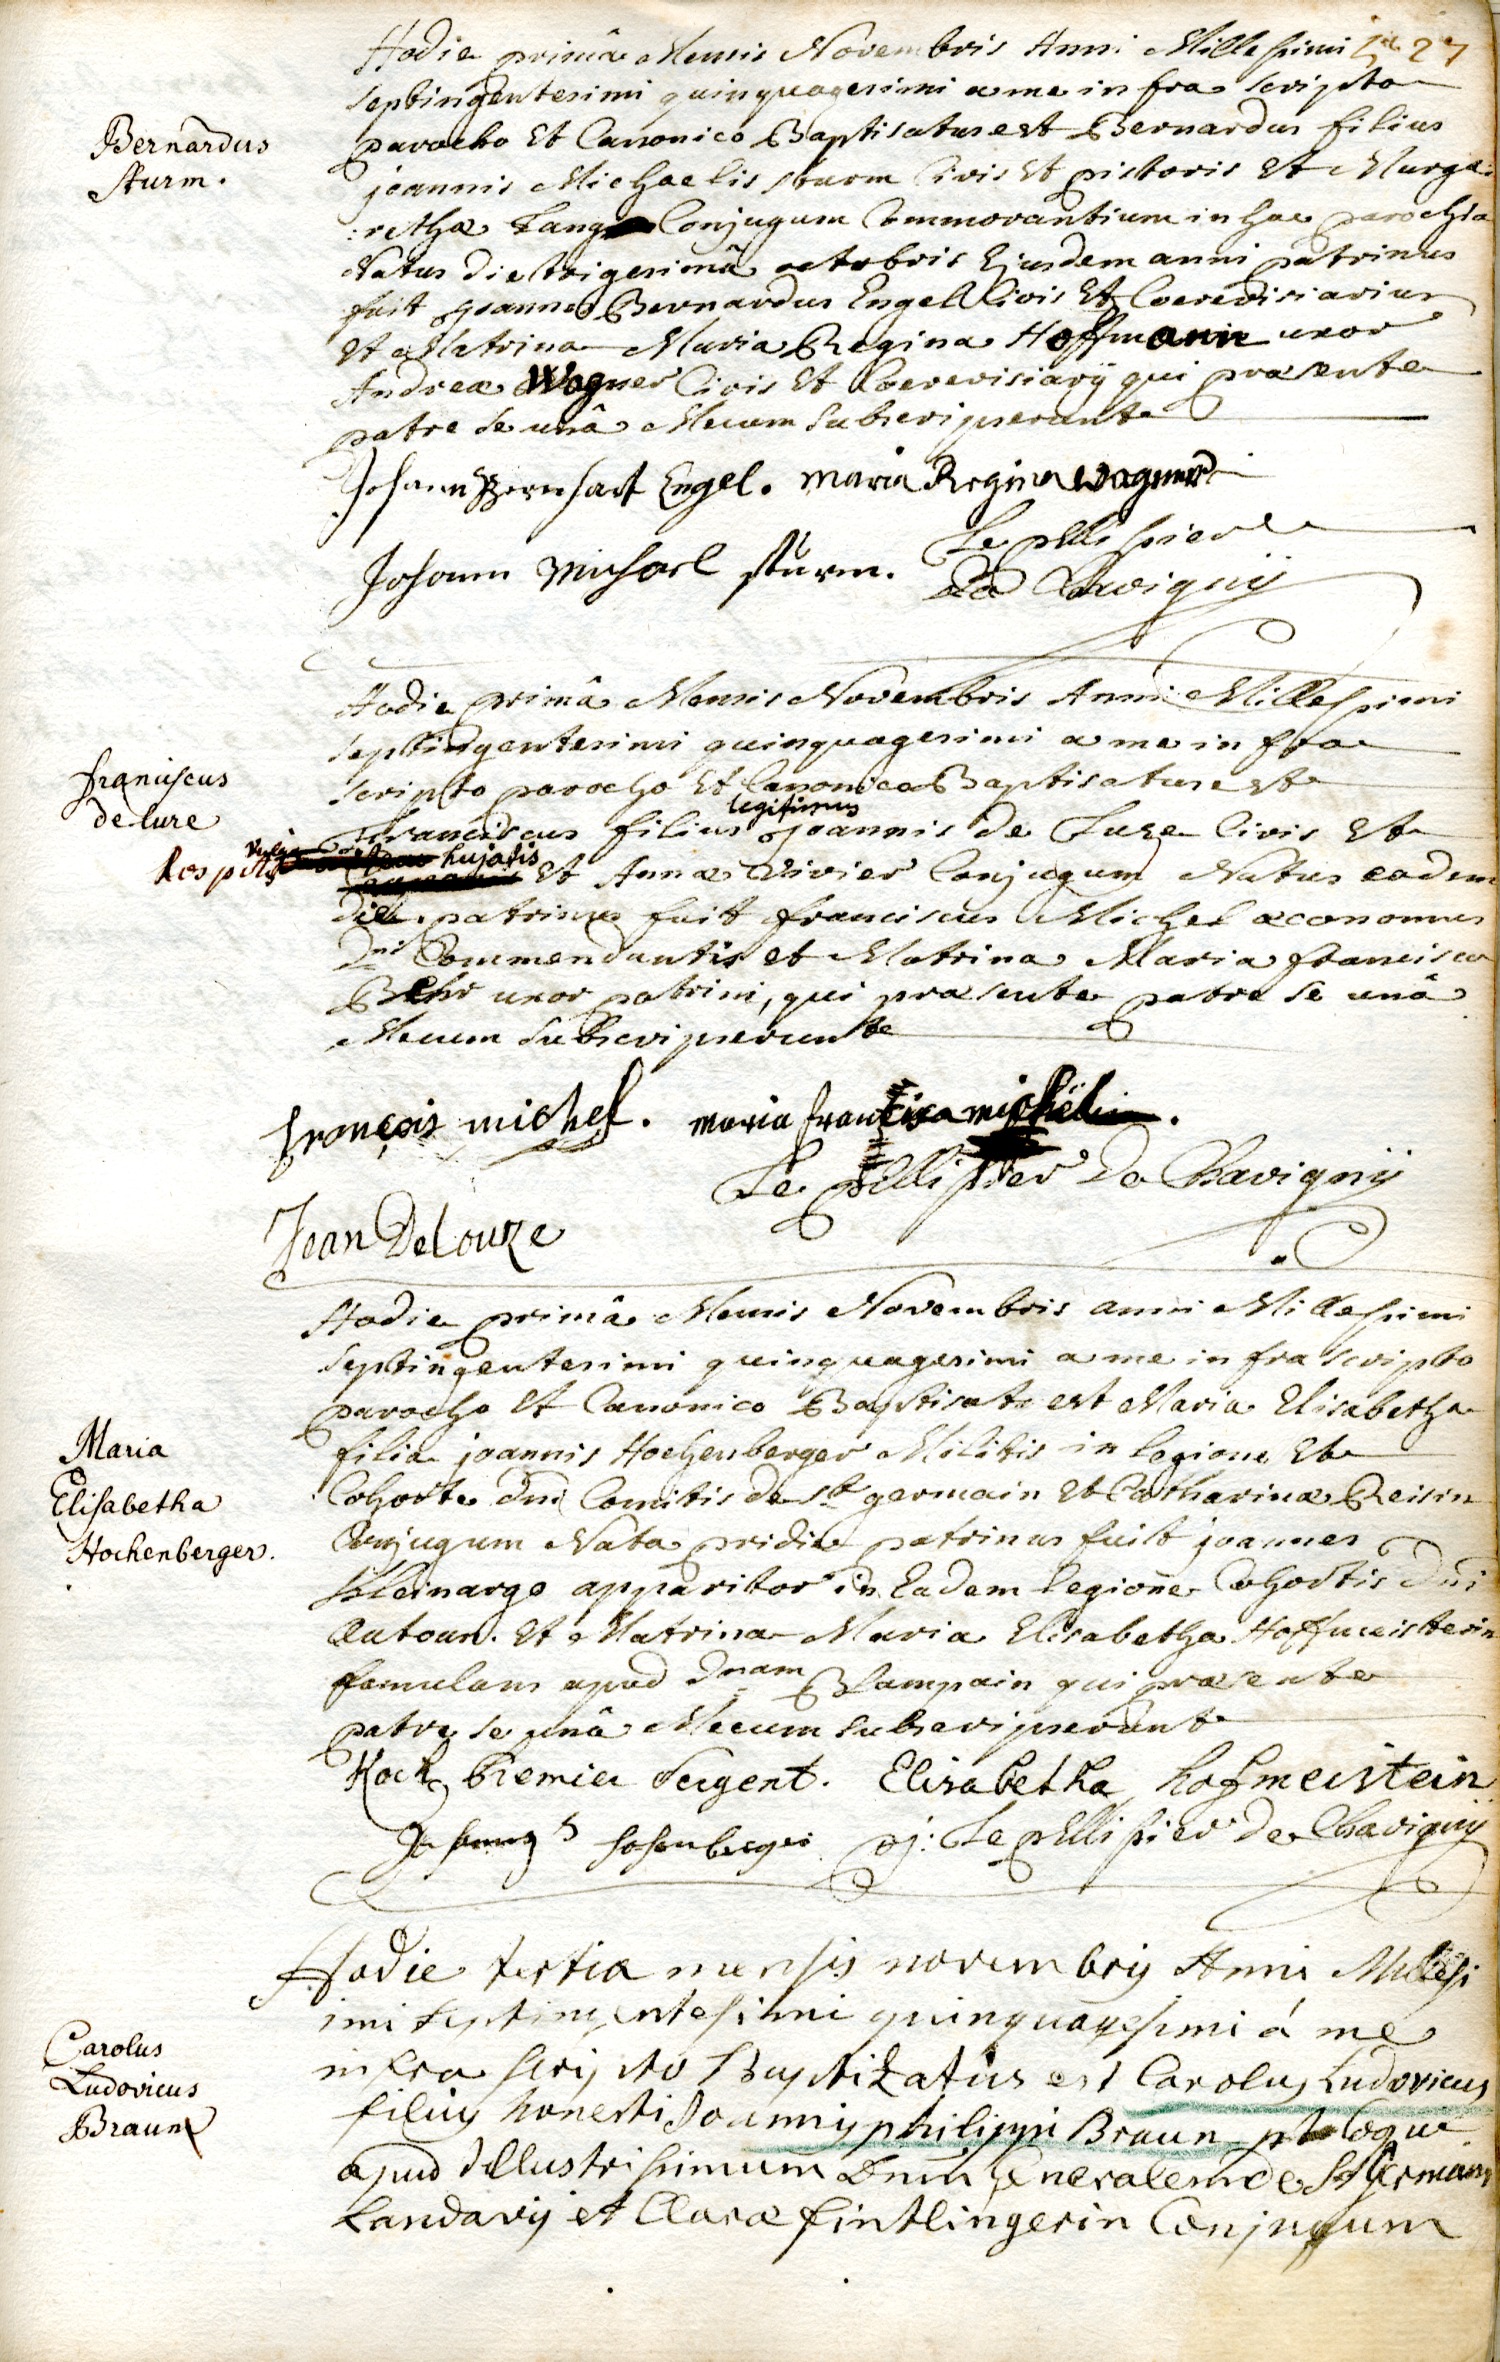 27
Hodie primâ Mensis Novembris Anni Millesimi
septingentesimi quinquagesimi a me infra scripto
parocho Et Canonico Baptisatus est Bernardus filius
Bernardus
Sturm.
joannis Michaelis sturm Civis Et pistoris Et Marga:
:rethæ Lang Conjugum Commorantium in hac parochia
Natus die trigesimâ octobris Ejusdem anni patrinus
fuit joannes Bernardus Engel Civis Et Coerevisiarius
Et Matrina Maria Regina Hoffmann uxor
Andreæ Wagner Civis Et Coerevisiarÿ qui præsente
patre se unâ Mecum Subscripserunt
Johann Bernhart Engel. Maria Regina Wagner
Johann Michael stürm. Le pellissier
De Chavignÿ
Hodie primâ Mensis Novembris Anni Millesimi
septingentesimi quinquagesimi a me infra
scripto parocho Et Canonico Baptisatus est
franciscus
de lure
legitimus
franciscus filius joannis de Luze Civis Et
hujatis
Et Annæ Vivier Conjugum Natus eadem
die. patrinus fuit franciscus Michel œconomus
Dni Commendantis et Matrina Maria francisca
Behr uxor patrini, qui præsente patre se unâ
Mecum Subscripserunt
françois michel. maria francisca
Le pellissier De Chavignÿ
Jean Delouze
Hodie primâ Mensis Novembris anni Millesimi
septingentesimi quinquagesimi a me infra scripto
parocho Et Canonico Baptisata est Maria Elisabetha
Maria
Elisabetha
Hochenberger.
filia joannis Hochenberger Militis in legione Et
Cohorte dni Comitis de st germain Et Catharinæ Reisin
Conjugum Nata pridie patrinus fuit joannes
apparitor in Eadem legione Cohortis Dni
Et Matrina Maria Elisabetha Hoffmeisterin
famulans apud Dnam Blampain qui præsente
patre se unâ Mecum Subscripserunt
Hock premier sergent. Elisabetha hofmeistein
hohenberger pj: Le pellissier De Chavignÿ
Hodie tertia mensis novembris Anni Millesi
imi septingentesimi quinquagesimi á me
infra scripto Baptizatus est Carolus Ludovicus
Carolus
Ludovicus
Braun
filius honesti Joannis philippi Braun coquæ
apud Illustrissimum Dnum Generalem de St Germain
Landavij et Claræ fintlingerin Conjugum